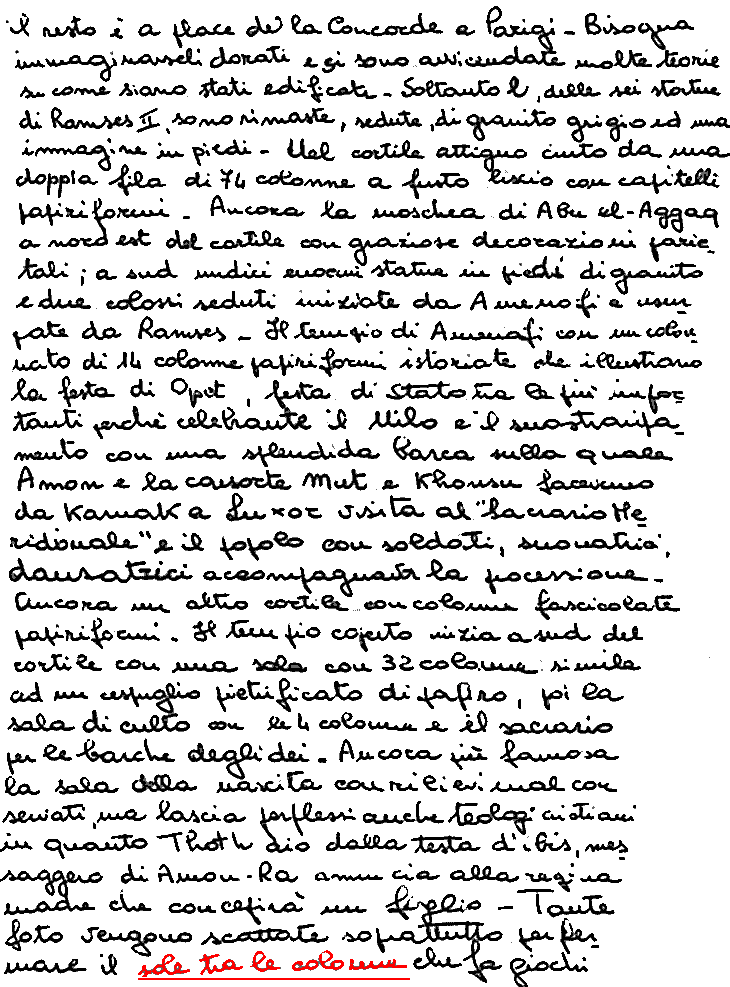 il resto è a place de la Concorde a Parigi - Bisogna
immaginarseli dorati e si sono avvicendate molte teorie
su come siano stati edificati - Soltanto 2, delle sei statue
di Ramses II, sono rimaste, sedute, di granito grigio ed una
immagine in piedi - Nel cortile attiguo cinto da una
doppia fila di 74 colonne a fusto liscio con capitelli
papiriformi - Ancora la moschea di Abu el-Aggag
a nord est del cortile con graziose decorazioni parie-
tali; a sud undici enormi statue in piedi di granito
e due colossi seduti iniziate da Amenofi e usur-
pate da Ramses - Il tempio di Amenofi con un colon-
nato di 14 colonne papiriformi istoriate che illustrano
la festa di Opet, festa di Stato tra le più impor-
tanti perché celebrante il Nilo e il suo straripa-
mento con una splendida barca sulla quale
Amon e la consorte Mut e Khonsu facevano
da Karnak a Luxor visita al "Sacrario Me-
ridionale" e il popolo con soldati, suonatrici,
danzatrici accompagnava la processione -
Ancora un altro cortile con colonne fascicolate
papiriformi. Il tempio coperto inizia a sud del
cortile con una sala con 32 colonne simile
ad un cespuglio pietrificato di papiro, poi la
sala di culto con le 4 colonne e il sacrario
per le barche degli dei - Ancora più famosa
la sala della nascita con rilievi mal con
servati, ma lascia perplessi anche teologi cristiani
in quanto Thoth dio dalla testa d'ibis, mes-
saggero di Amon-Ra annuncia alla regina
madre che concepirà un figlio - Tante
foto vengono scattate soprattutto per fer-
mare il sole tra le colonne che fa giochi